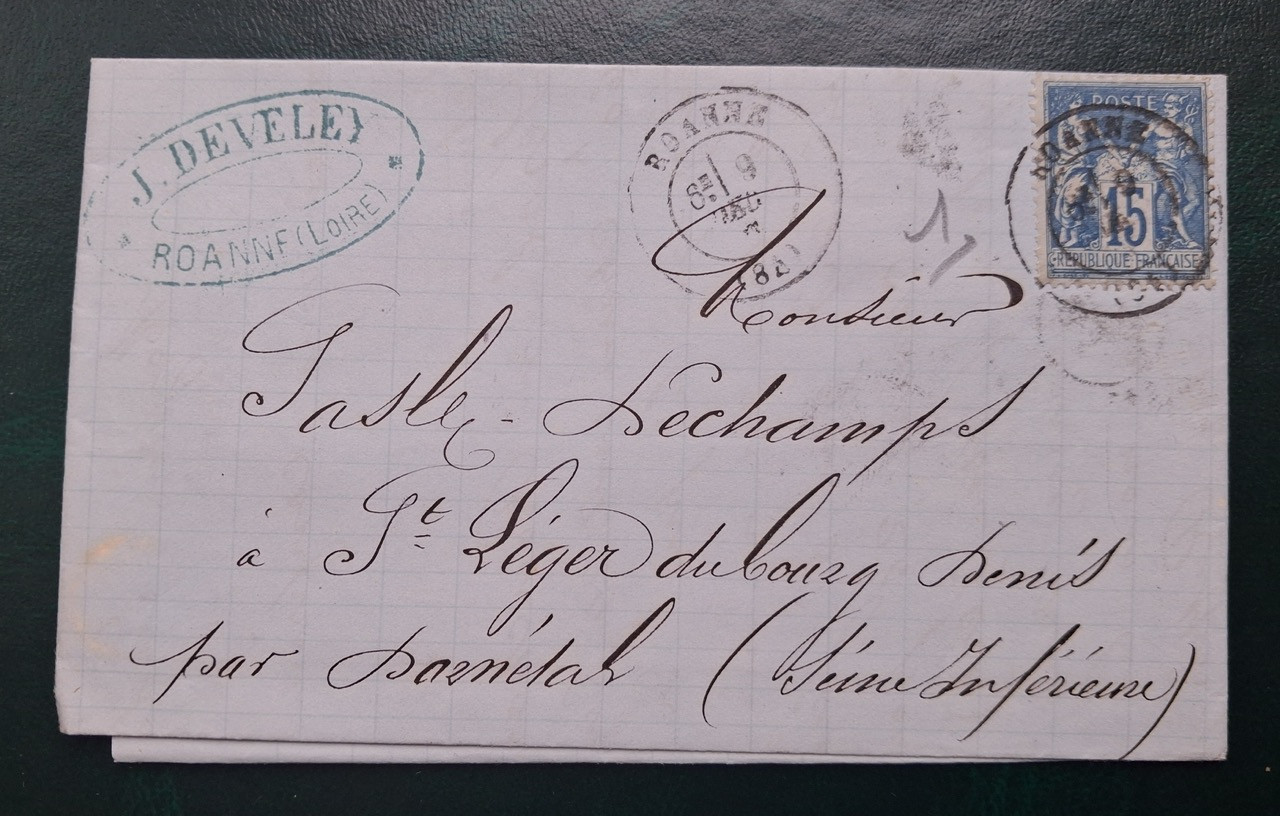 J. DEVELEY
ROANNE (LOIRE)
ROANNE
6E 9
(84)
POSTE
ROANNE
15
REPUBLIQUE FRANÇAISE
1
Monsieur
Gasly - Dechamps
à St Léger du bourg Denis
par Darnétal (Seine Inférieure)